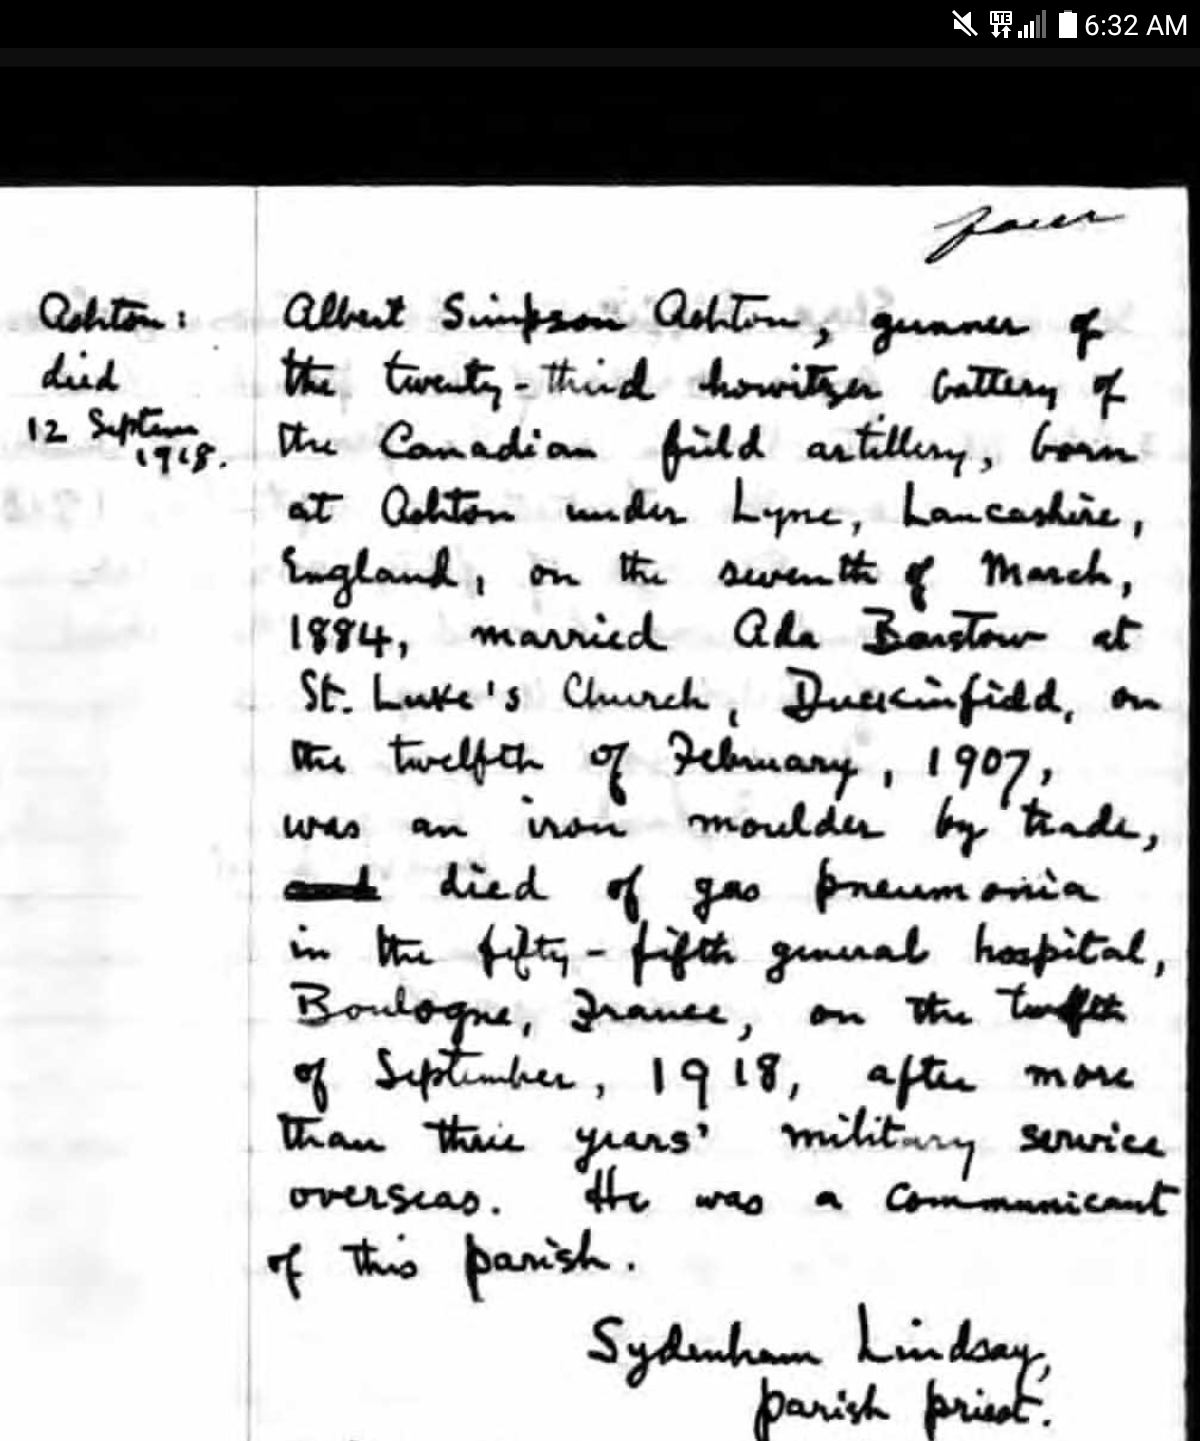 6:32 AM
Ashton:
died
12 Septem
1918.
Albert Simpson Ashton, gunner of
the twenty-third howitzer battery of
the Canadian field artillery, born
at Ashton under Lyne, Lancashire,
England, on the seventh of March,
1884, married Ada Barstow at
St. Luke's Church, Duckinfield, on
the twelfth of February, 1907,
was an iron moulder by trade,
and died of gas pneumonia
in the fifty-fifth general hospital,
Boulogne, France, on the twelfth
of September, 1918, after more
than three years' military service
overseas. He was a communicant
of this parish.
Sydenham Lindsay,
parish priest.